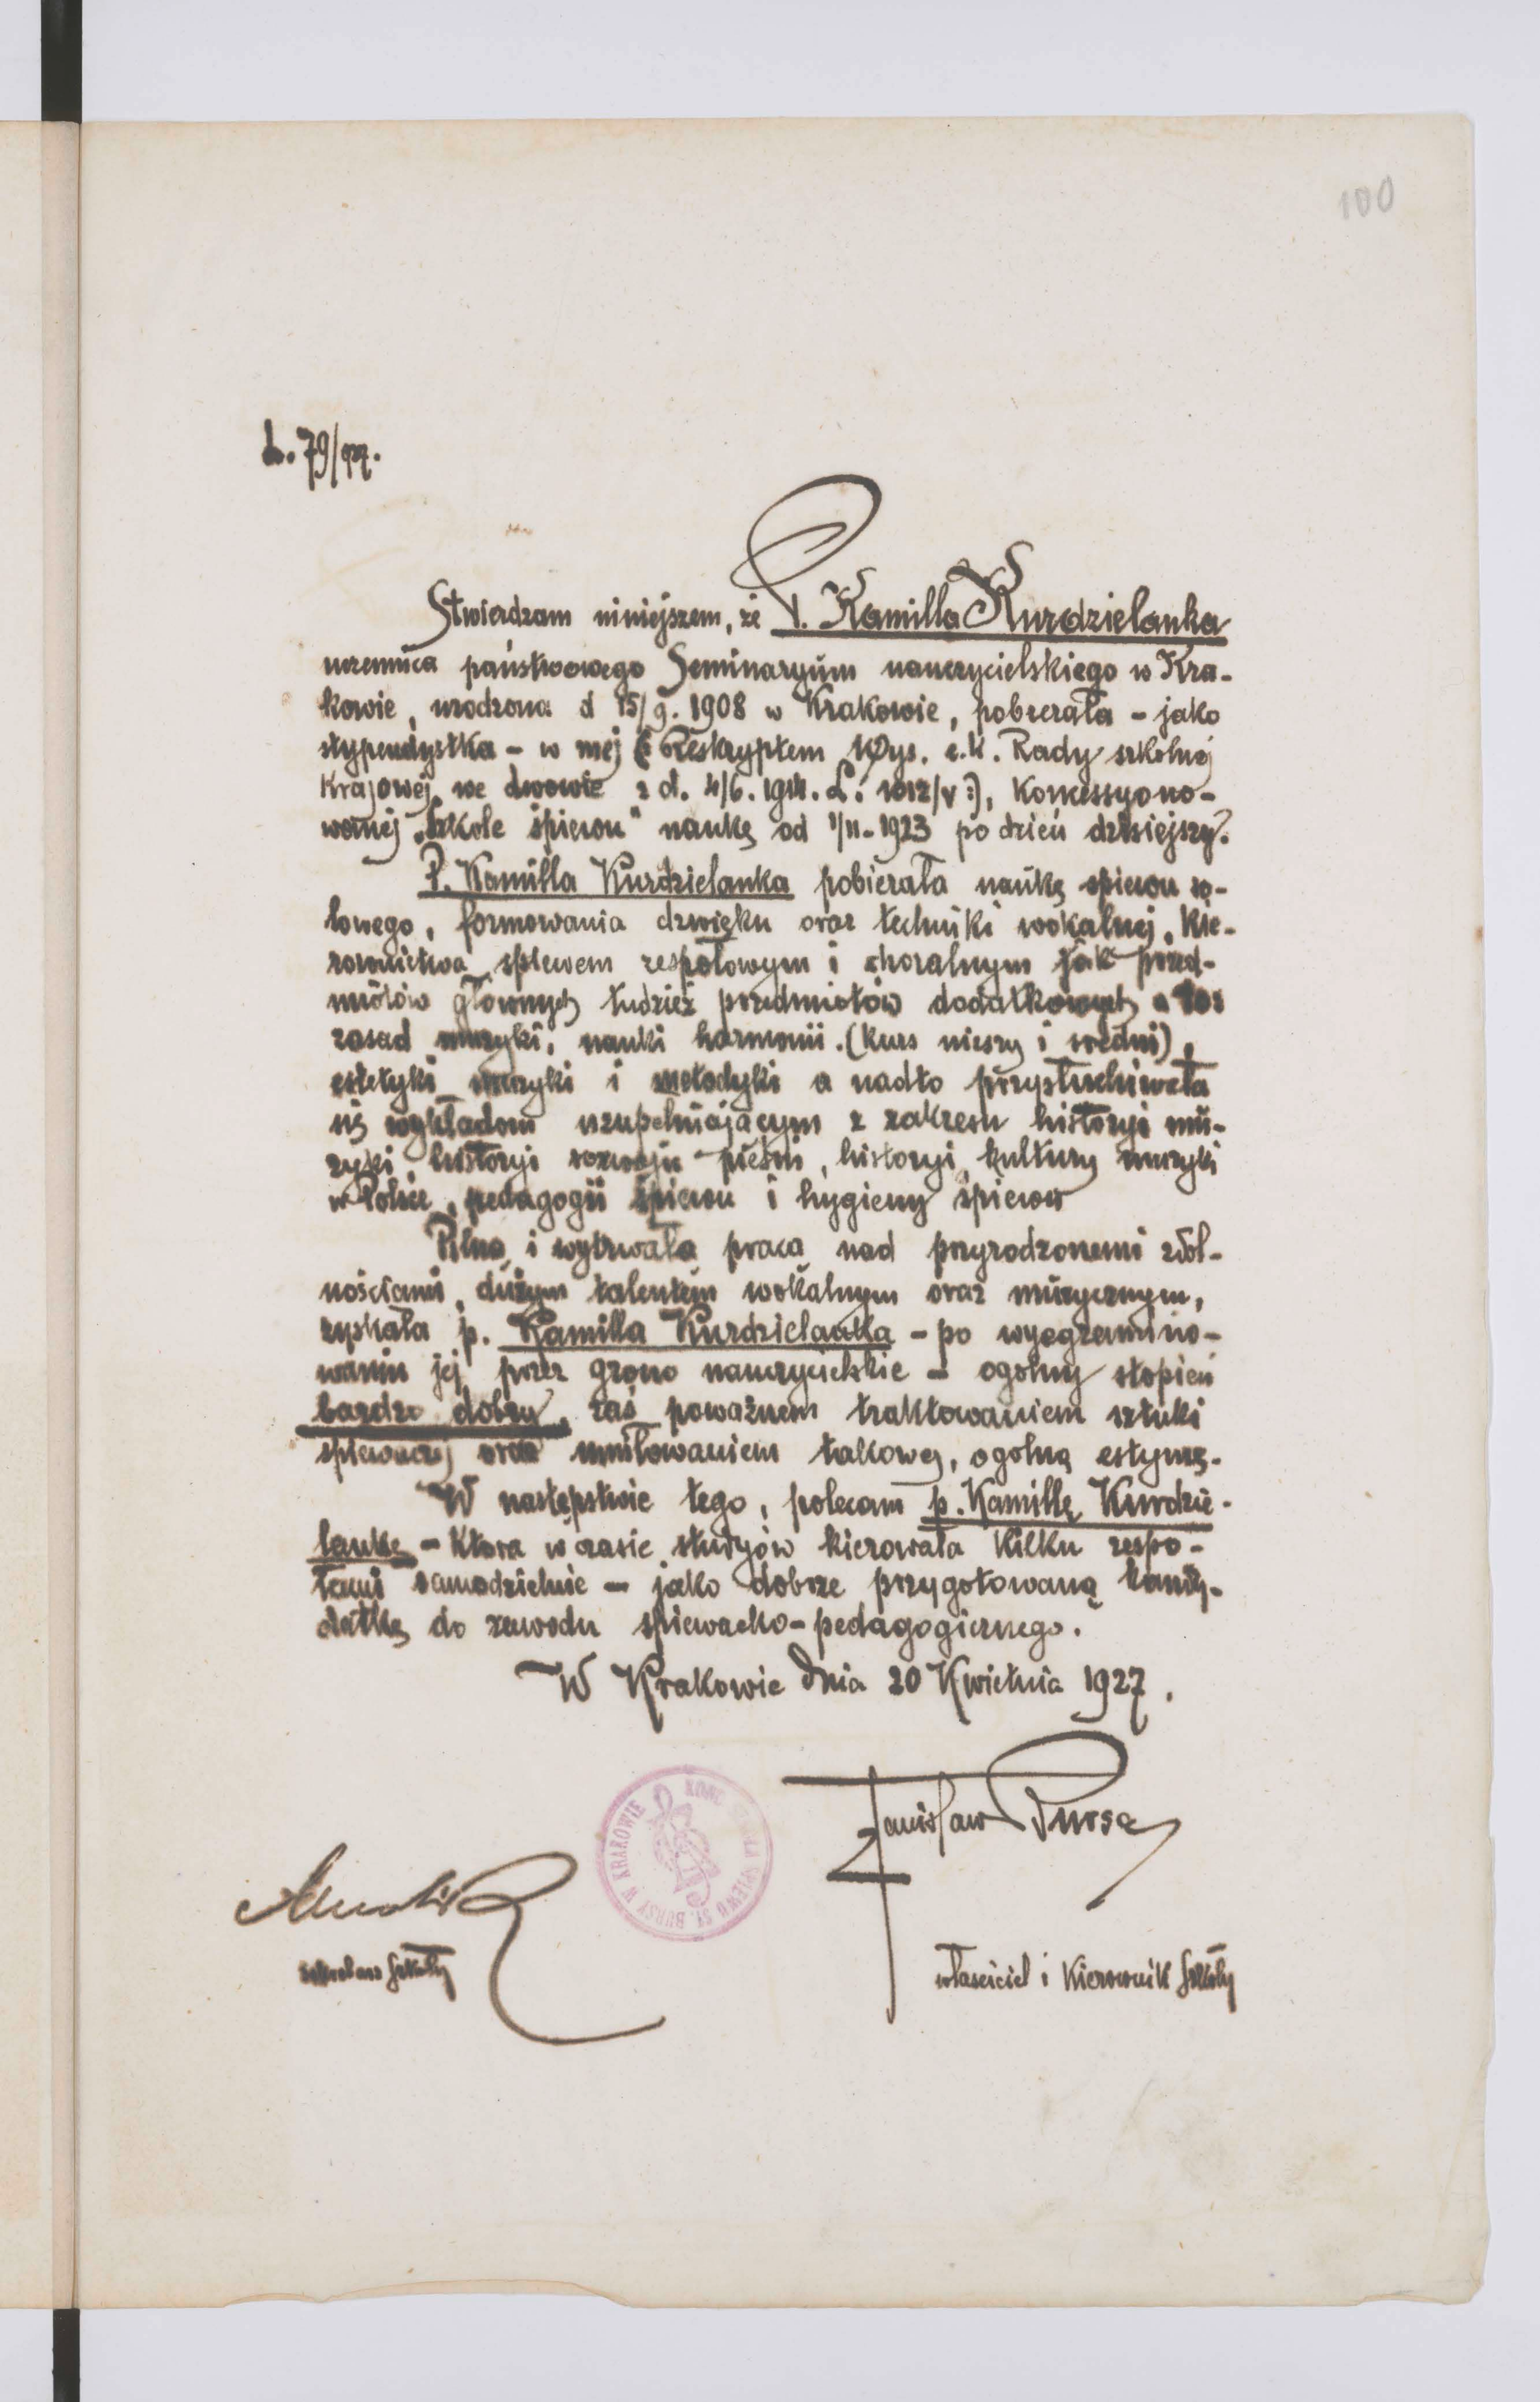 100
L. 79/927.
Stwierdzam niniejszem, że P. Kamilla Kurdzielanka
uczennica państwowego Seminaryum nauczycielskiego w Kra-
kowie, urodzona d 15/9. 1908 w Krakowie, pobierała - jako
stypendystka - w mej (: Reskryptem Wys. c. k. Rady szkolnej
Krajowej we Lwowie z d. 4/6. 1914. L: 1012/V :), Koncessyono-
wanej „Szkole śpiewu" naukę od 1/11-1923 po dzień dzisiejszy.
P. Kamilla Kurdzielanka pobierała naukę śpiewu so-
lowego, formowania dzwięku oraz techniki wokalnej, Kie-
rownictwa śpiewem zespołowym i choralnym jak przed-
miotów głównych tudzież przedmiotów dodatkowych a to:
zasad muzyki, nauki harmonii. (kurs niższy i średni),
estetyki muzyki i metodyki a nadto przysłuchiwała
się wykładom uzupełniającym z zakresu historyi mu-
zyki, historyi rozwoju pieśni, historyi kultury muzyki
w Polsce, pedagogii śpiewu i hygieny śpiewu
Pilną i wytrwałą pracą nad przyrodzonemi zdol-
nościami, dużym talentem wokalnym oraz muzycznym,
zyskała p. Kamilla Kurdzielanka - po wyegzamino-
waniu jej przez grono nauczycielskie - ogolny stopień
bardzo dobry, zaś poważnem traktowaniem sztuki
śpiewaczej oraz umiłowaniem takowej, ogolną estymę.
W następstwie tego, polecam p. Kamillę Kurdzie-
lankę - Która w czasie studyów kierowała Kilku zespo-
łami samodzielnie - jako dobrze przygotowaną kandy-
datkę do zawodu śpiewacko-pedagogicznego.
W Krakowie dnia 20 Kwietnia 1927.
Stanisław Bursa
KONC. SZKOŁA ŚPIEWU ST. BURSY W KRAKOWIE
sekretarz Szkoły
właściciel i Kierownik Szkoły